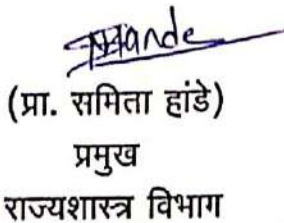 Hande
(प्रा. समिता हांडे)
प्रमुख
राज्यशास्त्र विभाग